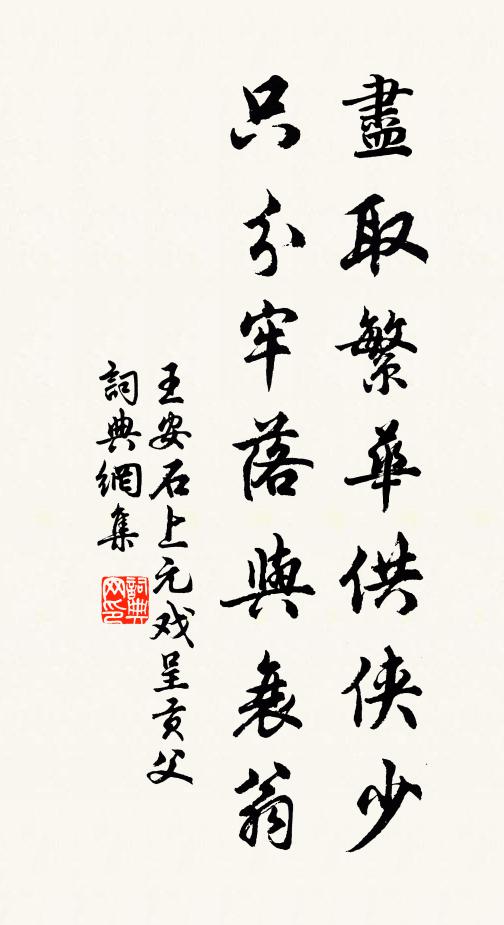 盡取繁華供俠少
只分牢落與衰翁
王安石上元戏呈貢父
詞典網集
詞典网印